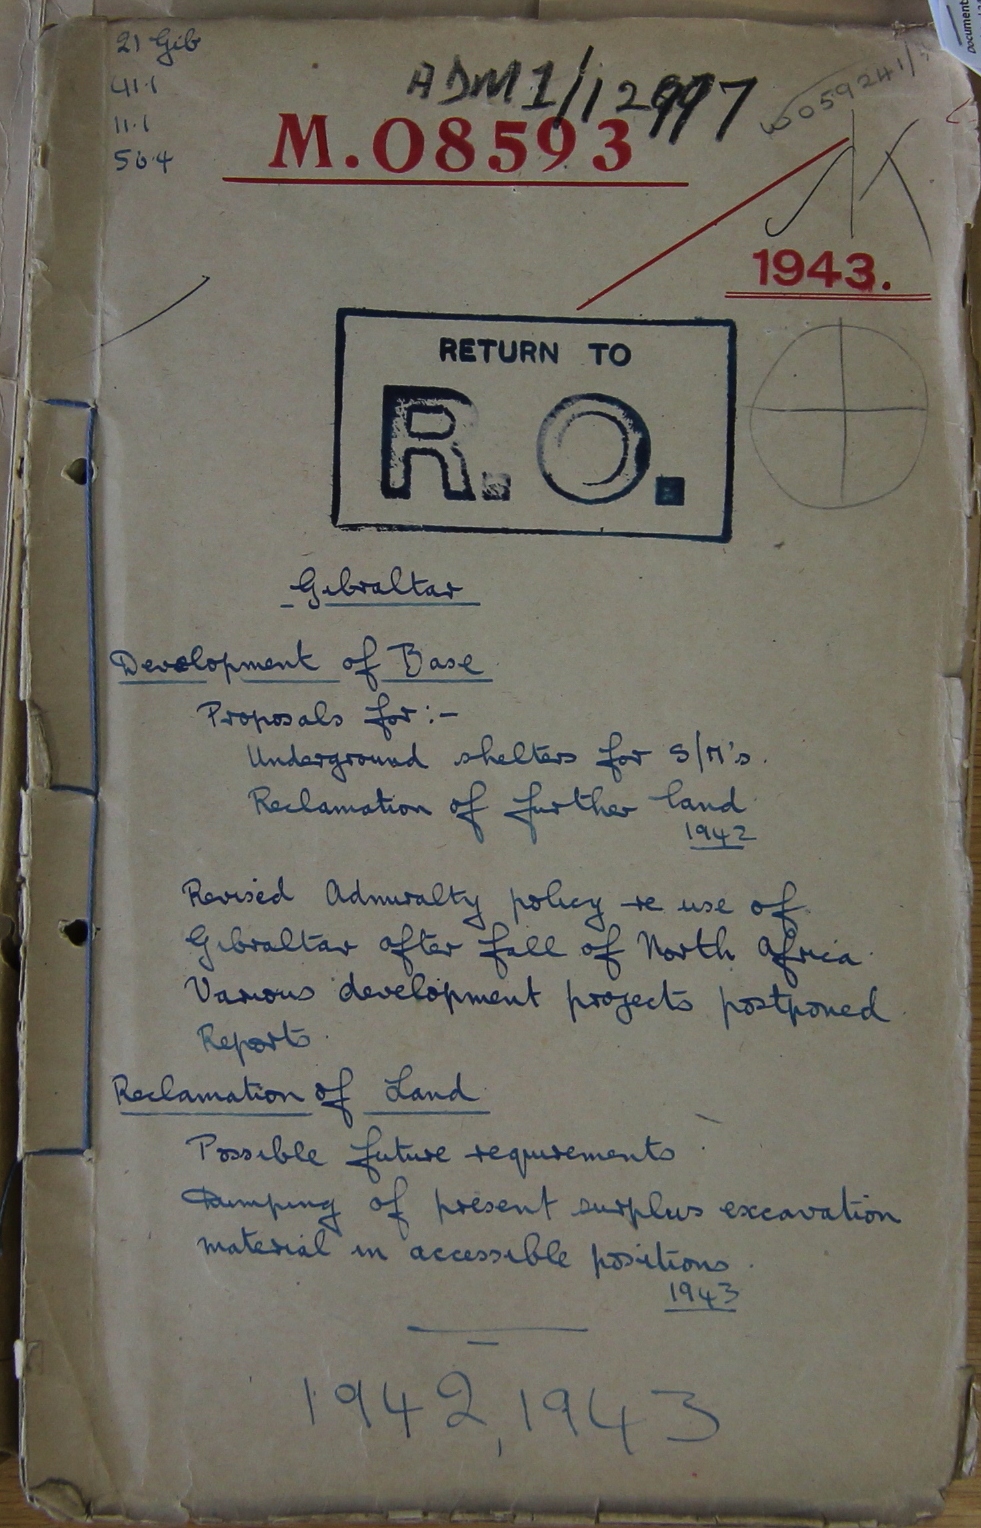 21 Gib
41.1
11.1
56.4
ADM1/12997
M.08593
1943.
RETURN TO
R.O.
Gibraltar
Development of Base
Proposals for:-
Underground shelters for S/M's.
Reclamation of further land
1942
Revised Admiralty policy re use of
Gibraltar after fall of North Africa
Various development projects postponed
Reports.
Reclamation of Land
Possible future requirements
Dumping of present surplus excavation
material in accessible positions.
1943
1942, 1943